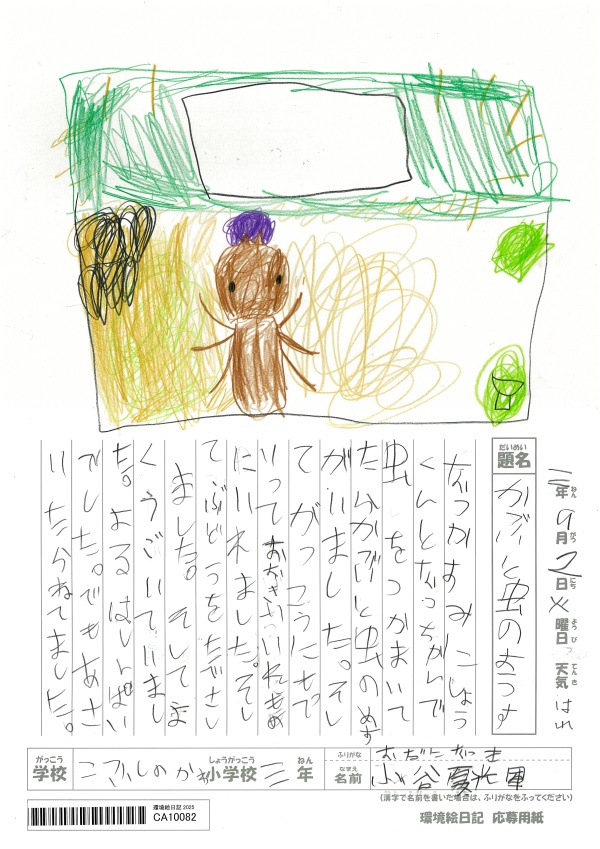 三年ねん9月がつ2日にち火曜日ようび天気てんきはれ
だいめい
題名 かぶと虫のようす
くんとなっちゃんで
虫をつかまいて
たらかぶと虫のめす
がいました。そし
てがっこうにもで
いっておおきいいれもの
にいれました。そし
てぶどうをたださし
ました。そしてよ
くうごいていまし
た。よるはしっぱい
でした。でもあさ
いたらねてました。
がっこう しょうがっこう ねん ふりがな おだになつき
学校 小学校 三年 なまえ 名前 小谷
(漢字で名前を書いた場合は、ふりがなをふってください)
環境絵日記 応募用紙
環境絵日記 2025
CA10082